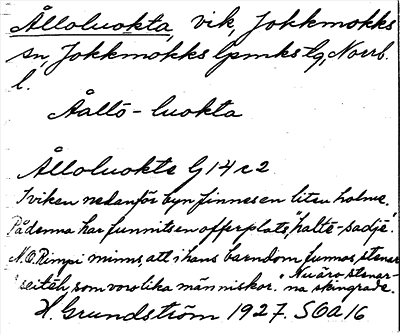 Ålloluokta, vik, Jokkmokks
sn, Jokkmokks lpmks tg, Norrb.
l.
Åallō-luokta
Ålloluokta G 14 c 2
I viken nedanför byn finnes en liten holme.
På denna har funnits en offerplats, "haltē-sadjē".
N. O. Rimpi minns, att i hans barndom funnos stenar
"seiteh, som voro lika människor. Nu äro stenar-
na skingrade.
H. Grundström 1927. SOA 16